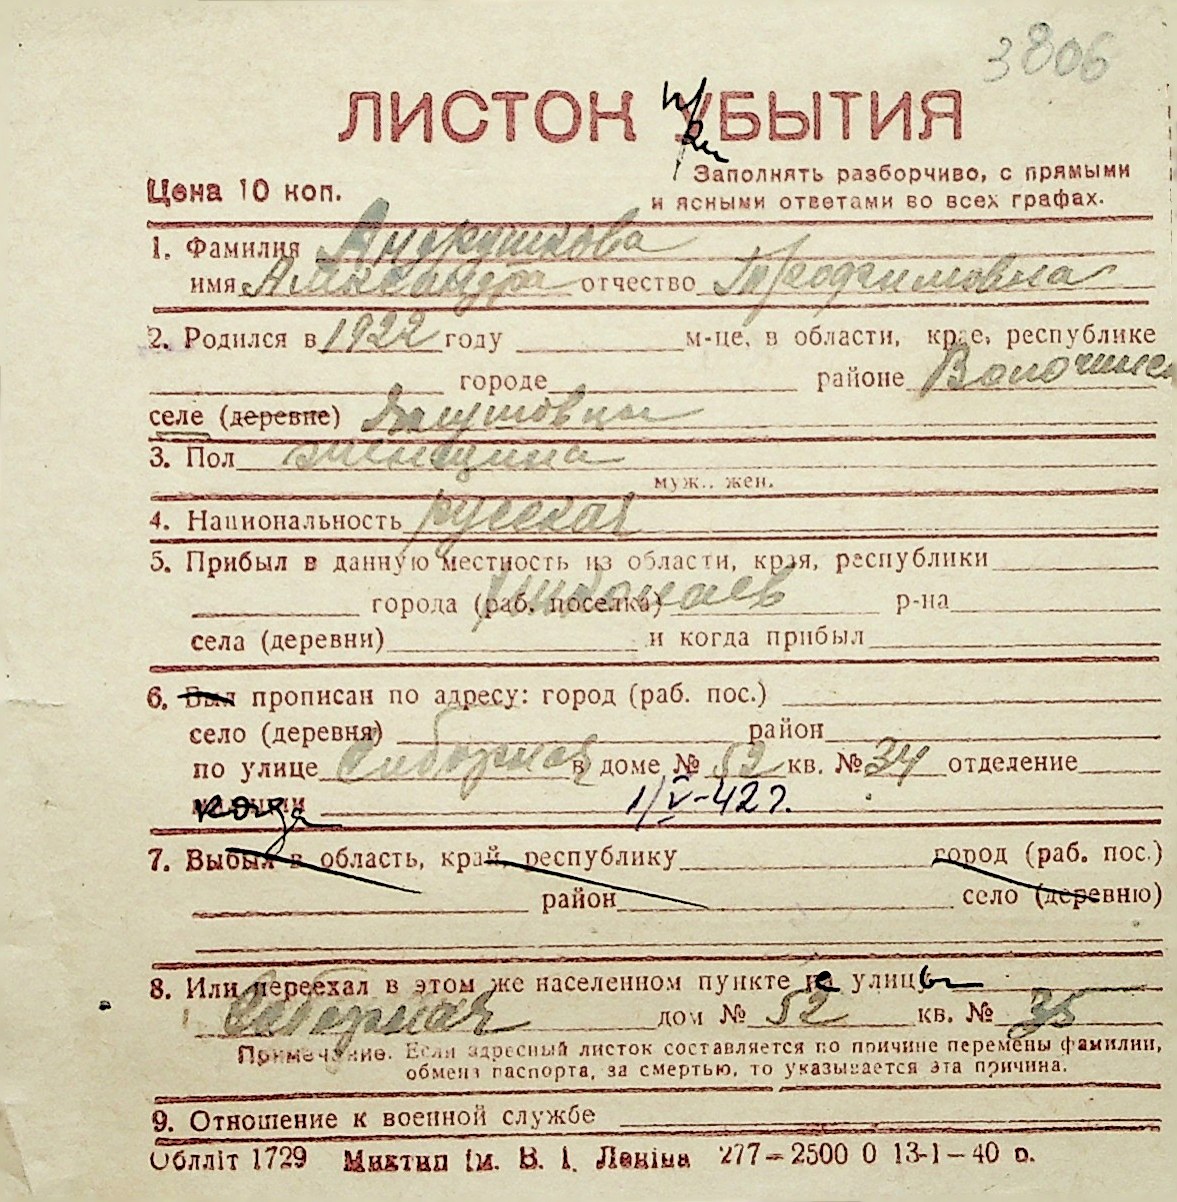 3806
ЛИСТОК УБЫТИЯ
при
Цена 10 коп.
Заполнять разборчиво, с прямыми
и ясными ответами во всех графах.
1. Фамилия Андрушкова
имя Александра отчество Трофимовна
2. Родился в 1922 году м-це, в области, крае, республике
городе районе Волочинск
селе (деревне)
3. Пол женщина
муж., жен.
4. Национальность русская
5. Прибыл в данную местность из области, края, республики
города (раб. поселка) Николаев р-на
села (деревни) и когда прибыл
6. Был прописан по адресу: город (раб. пос.)
село (деревня) район
по улице Соборная в доме № 52 кв. № 34 отделение
когда 1/V-42 г.
7. Выбыл в область, край, республику город (раб. пос.)
район село (деревню)
8. Или переехал в этом же населенном пункте с улицы
Соборная дом № 52 кв. № 35
Примечание. Если адресный листок составляется по причине перемены фамилии,
обмена паспорта, за смертью, то указывается эта причина.
9. Отношение к военной службе
Облліт 1729 Миктип ім. В. І. Леніна 277–2500 0 13-1–40 р.